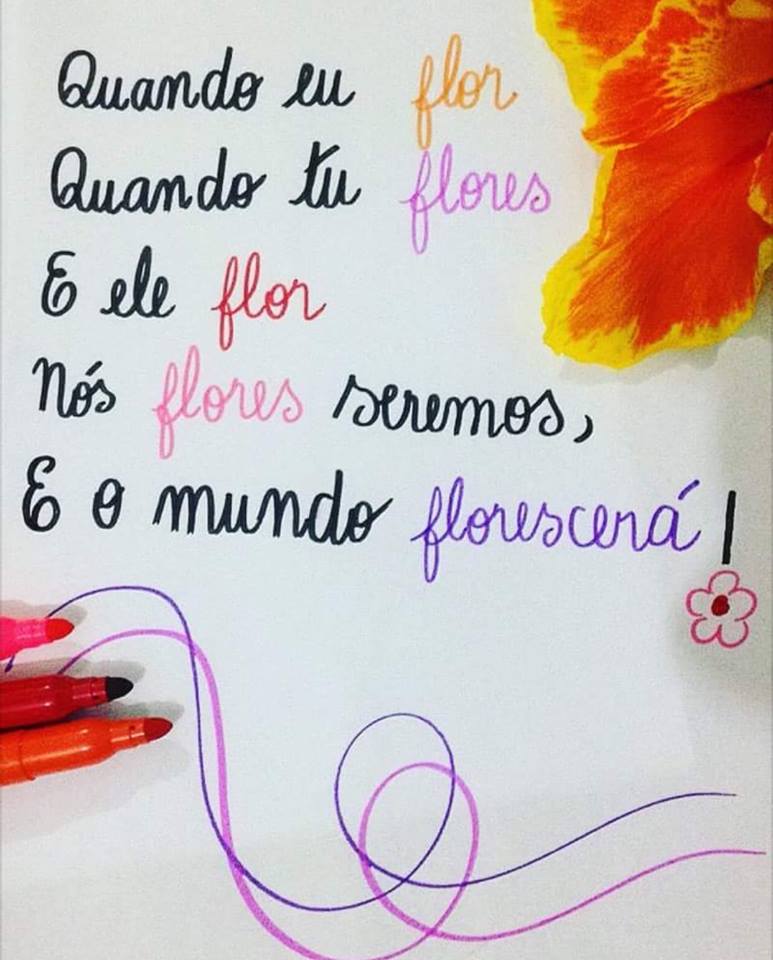 Quando eu flor
Quando tu flores
E ele flor
Nós flores seremos,
E o mundo florescerá!